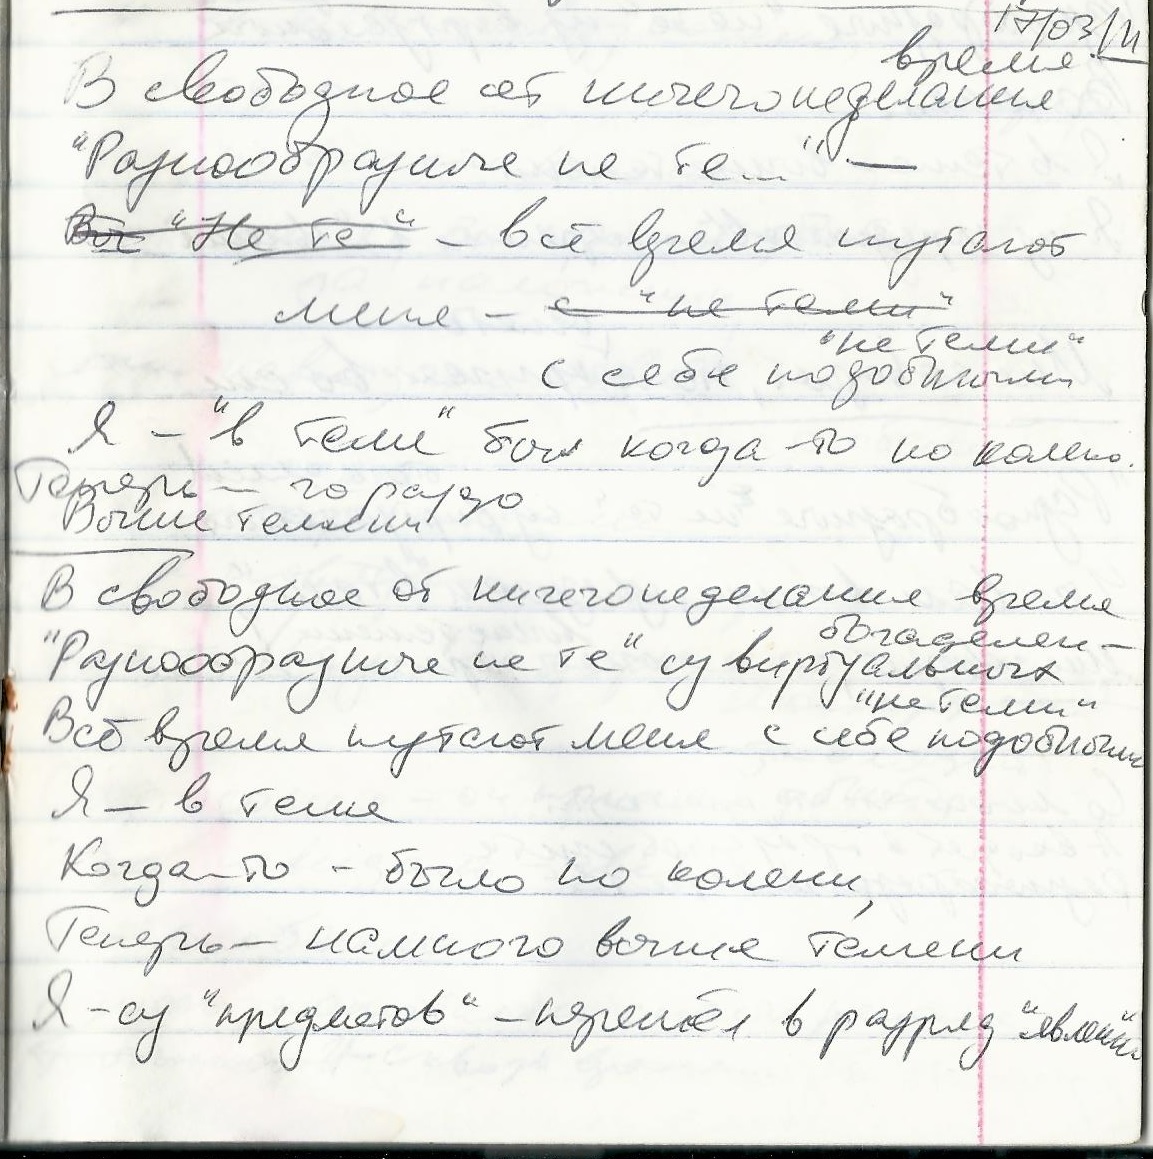 17/03/11
время
В свободное от ничегонеделания
"Разнообразные не те..." —
Все "Не те" – всё время путают
меня – с "не теми"
"не теми"
с себе подобными
Я – "в теме" был когда-то по колено.
Теперь – гораздо
Выше темени
В свободное от ничегонеделания время
богаделен –
"Разнообразные не те" из виртуальных
"не теми"
Всё время путают меня с себе подобными
Я – в теме
Когда-то – было по колени,
Теперь – намного выше темени
Я – из "предметов" – перешёл в разряд "явлений"